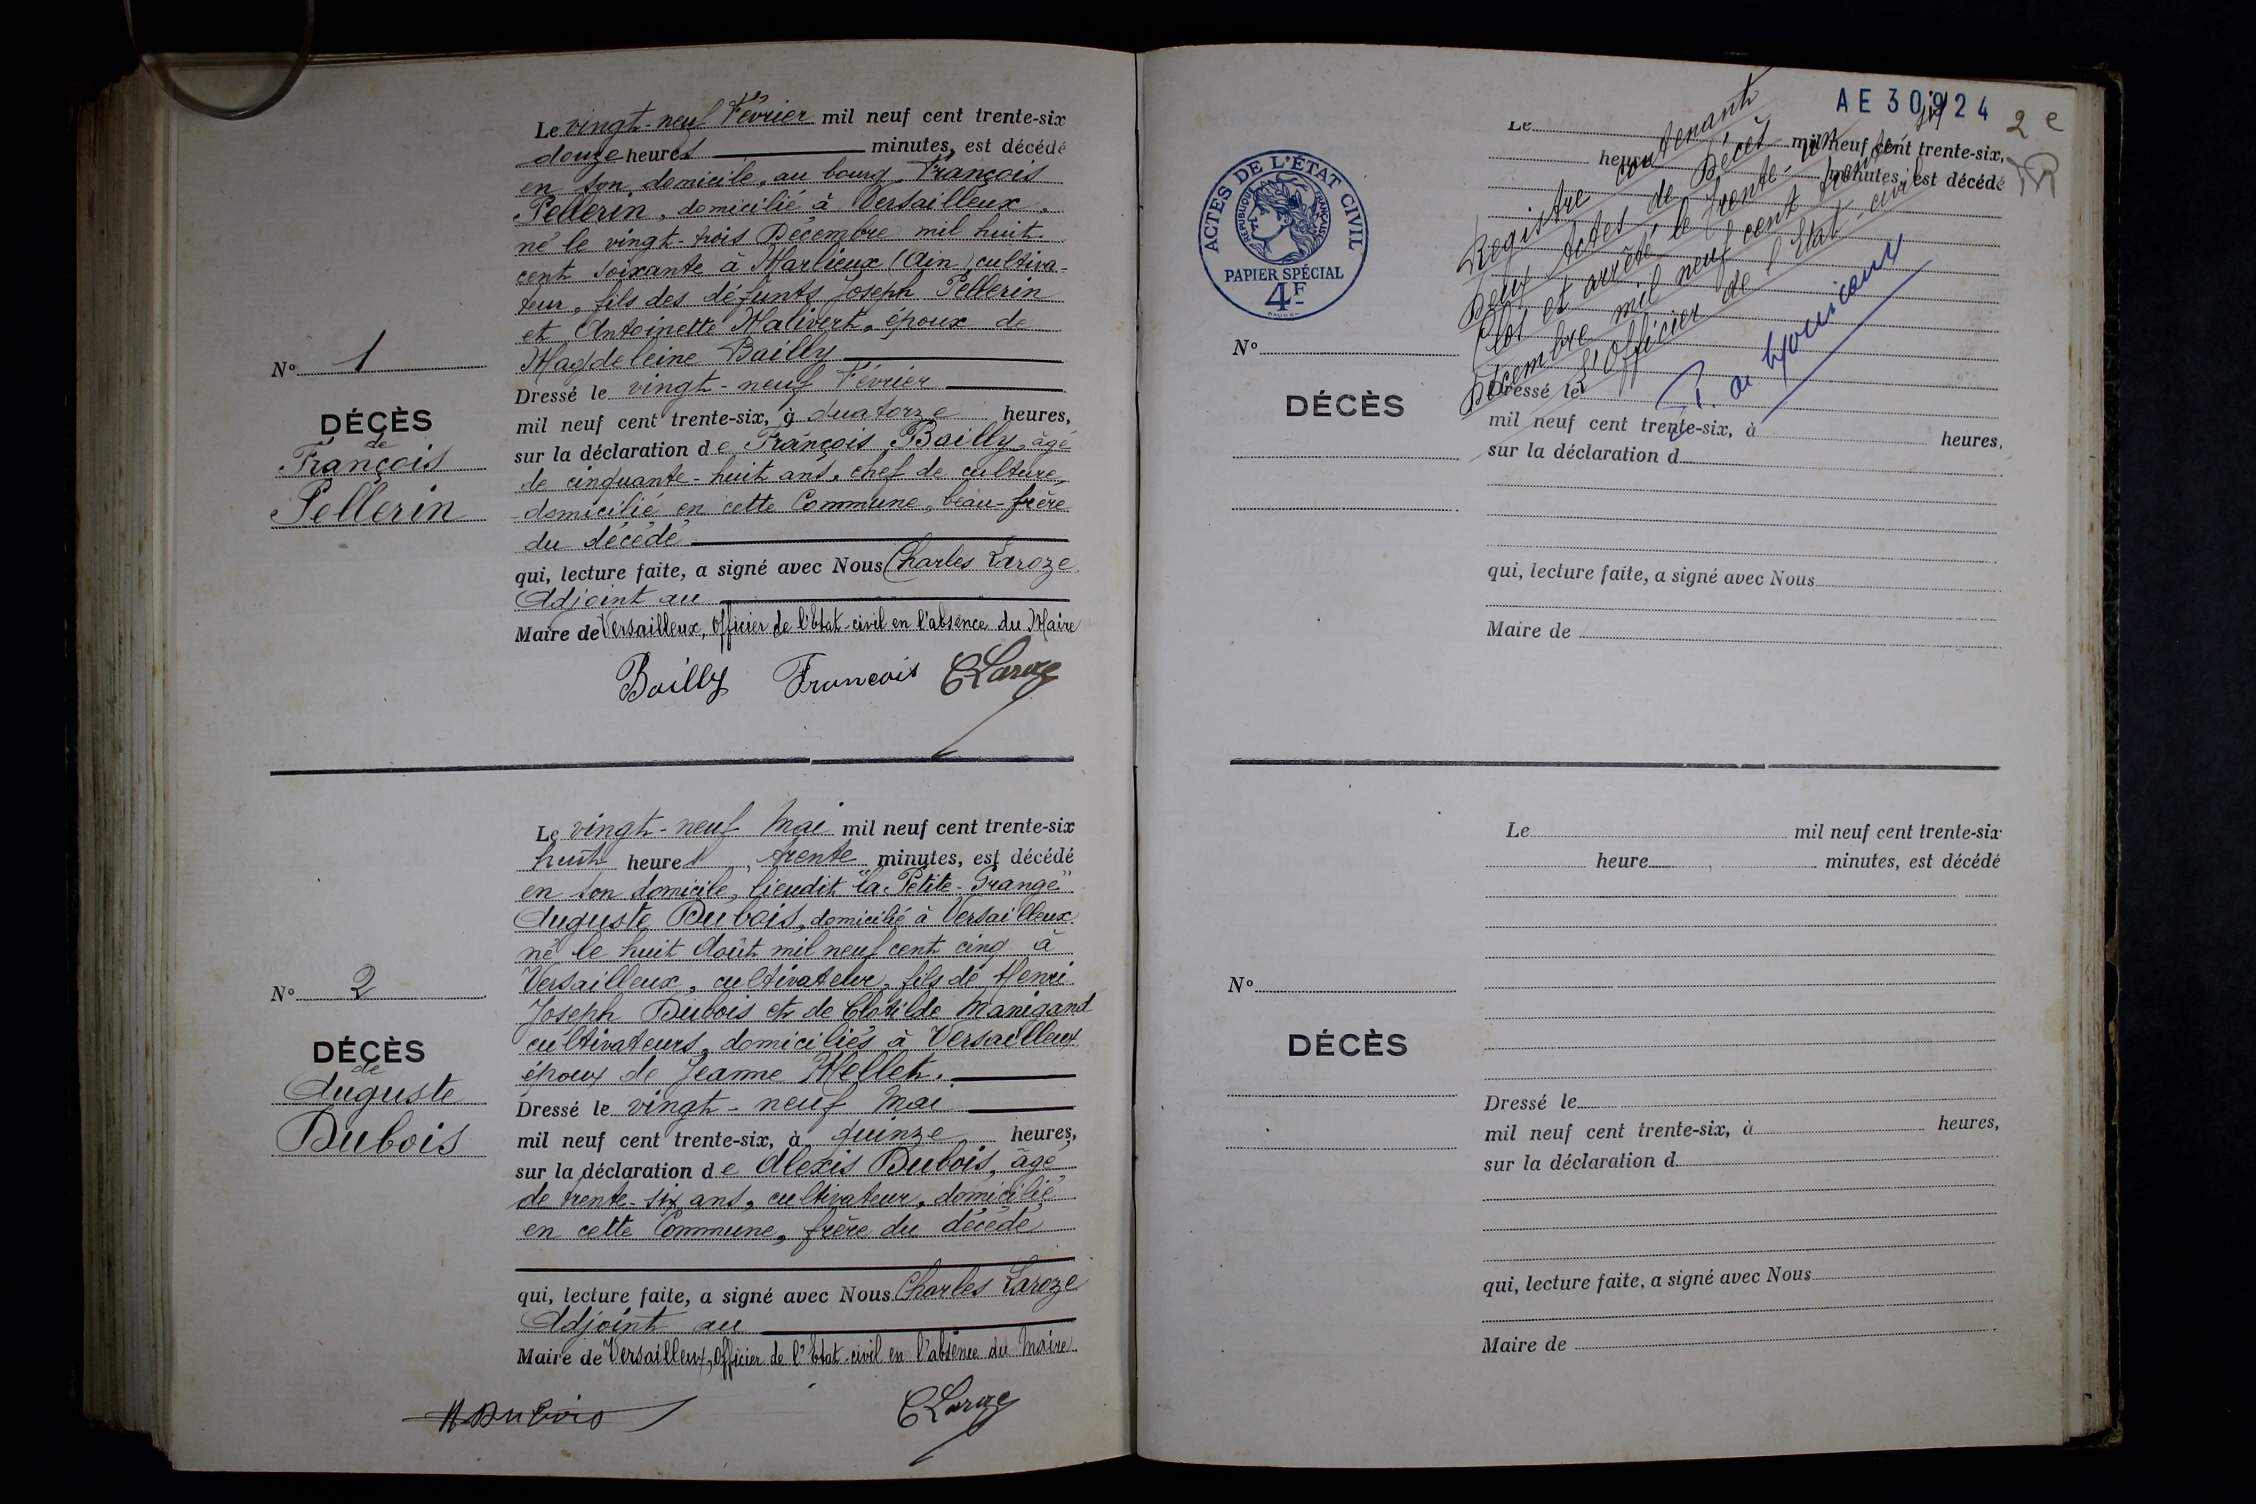 Le vingt-neuf Février mil neuf cent trente-six
douze heures minutes, est décédé
en son domicile, au bourg, François
Pellerin, domicilié à Versailleux,
né le vingt-trois Décembre mil huit
cent soixante à Marlieux (Ain) cultiva-
teur, fils des défunts Joseph Pellerin
et Antoinette Malivert, époux de
Magdeleine Bailly
Dressé le vingt-neuf Février
mil neuf cent trente-six, à quatorze heures,
sur la déclaration de François Bailly, âgé
de cinquante-huit ans, chef de culture,
domicilié en cette Commune, beau-frère
du décédé
qui, lecture faite, a signé avec Nous Charles Laroze,
Adjoint au
Maire de Versailleux, Officier de l'Etat-civil en l'absence du Maire
Bailly François CLaroze
N° 1
DÉCÈS
de
François
Pellerin
Le vingt-neuf Mai mil neuf cent trente-six
huit heures, trente minutes, est décédé
en son domicile, lieudit "la Petite-Grange"
Auguste Dubois, domicilié à Versailleux
né le huit Août mil neuf cent cinq à
Versailleux, cultivateur, fils de Henri
Joseph Dubois et de Clotilde Manigand
cultivateurs, domiciliés à Versailleux
époux de Jeanne Mellet.
Dressé le vingt-neuf Mai
mil neuf cent trente-six, à quinze heures,
sur la déclaration de Alexis Dubois, âgé
de trente-six ans, cultivateur, domicilié
en cette Commune, frère du décédé
qui, lecture faite, a signé avec Nous Charles Laroze
Adjoint au
Maire de Versailleux, Officier de l'Etat-civil en l'absence du Maire.
ADubois CLaroze
N° 2
DÉCÈS
de
Auguste
Dubois
AE 30924
2e
ACTES DE L'ÉTAT CIVIL
RÉPUBLIQUE FRANÇAISE
PAPIER SPÉCIAL
4F
Le mil neuf cent trente-six,
heure minutes, est décédé
Registre contenant
Deux Actes de Décès
Clos et arrêté le trente-un
Décembre mil neuf cent trente six
L'Officier de l'Etat-civil
N°
DÉCÈS
Dressé le
mil neuf cent trente-six, à heures,
sur la déclaration d
qui, lecture faite, a signé avec Nous
Maire de
Le mil neuf cent trente-six
heure , minutes, est décédé
N°
DÉCÈS
Dressé le
mil neuf cent trente-six, à heures,
sur la déclaration d
qui, lecture faite, a signé avec Nous
Maire de